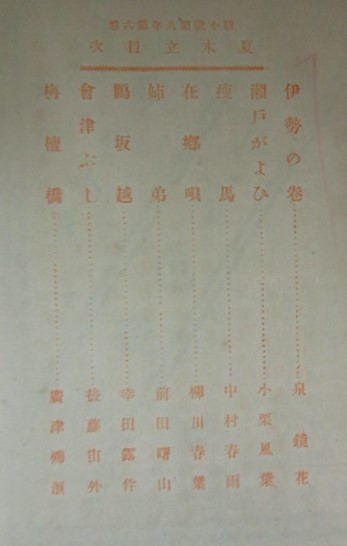 新小說第八年第六卷
夏木立目次
伊勢の卷 泉鏡花
瀨戶がよひ 小栗風葉
瘦馬 中村春雨
在鄕唄 柳川春葉
姉弟 前田曙山
鶴坂越 幸田露伴
會津ぶし 後藤宙外
栴檀橋 廣津柳浪